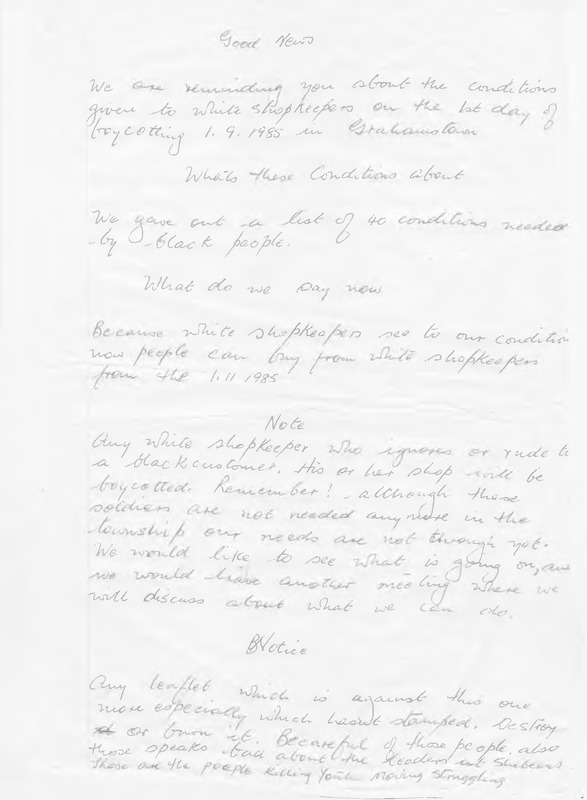 Good News
We are reminding you about the conditions
given to white shopkeepers on the 1st day of
boycotting 1.9.1985 in Grahamstown
Whats these Conditions about
We gave out a list of 40 conditions needed
by black people.
What do we say now
Because white shopkeepers see to our condition
now people can buy from white shopkeepers
from the 1.11.1985
Note
Any white shopkeeper who ignores or rude to
a black customer. His or her shop will be
boycotted. Remember! although these
soldiers are not needed anymore in the
township our needs are not through yet.
We would like to see what is going on, and
we would leave another meeting where we
will discuss about what we can do.
Notice
Any leaflet which is against this one
more especially which hasnt stamped. Destroy
or burn it. Becareful of those people also
those speaks bad about the leaders at Shebeens
Those are the people killing Youth moving struggling